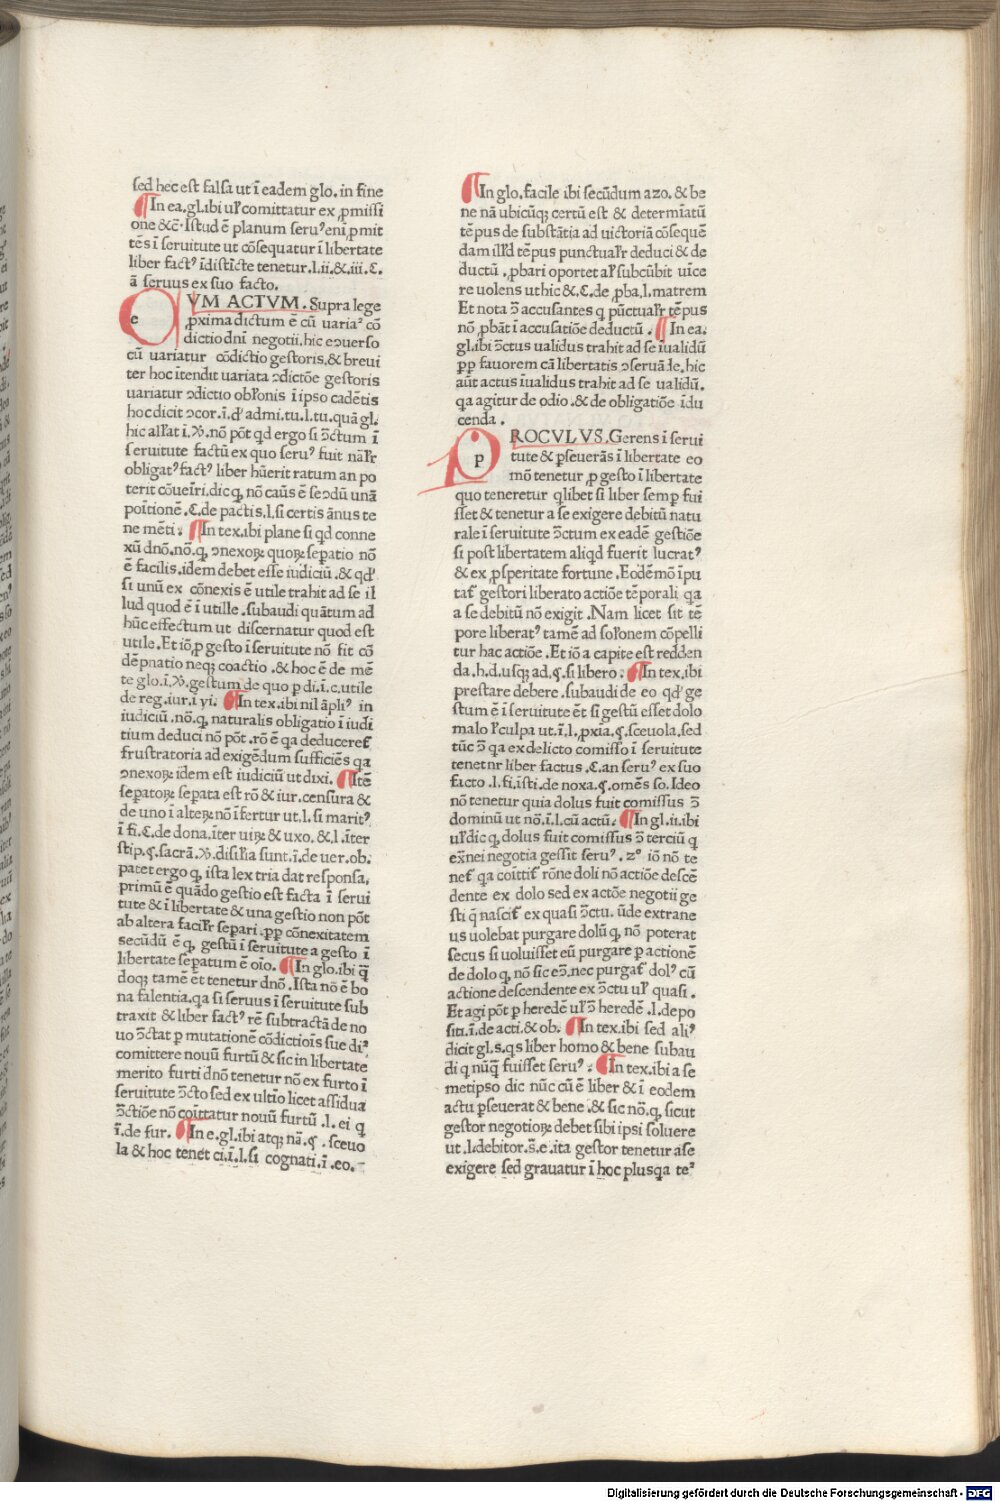 sed hec est falsa ut ī eadem glo. in fine
¶In ea. gl. ibi ul’r comittatur ex ꝓmissi
one &c̄· Istud ē planum seruꝰ enī ꝓmit
tēs ī seruitute ut cōsequatur ī libertate
liber factꝰ īdistīcte tenetur .l. ii. & .iii. C.
ā seruus ex suo facto.
e VM ACTVM. Supra lege
ꝓxima dictum ē cū uariaᵗ cō
dictio dnī negotii. hic ecuerso
cū uariatur cōdictio gestoris. & breui
ter hoc ītendit uariata ↄdictōe gestoris
uariatur ↄdictio obl’onis ī ipso cadētis
hoc dicit ↄcor. ī. d’ admi. tu. l. tu. quā gl.
hic all’at ī. ꝟ. nō pōt qd ergo si ↄ̄ctum ī
seruitute factū ex quo seruꝰ fuit nāl’r
obligatꝰ factꝰ liber hūerit ratum an po
terit cōueīri. dic ꝙ nō caūs ē secↄdū unā
poītionē .C. de pactis. l. si certis ānus te
ne mēti: ¶In tex. ibi plane si qd conne
xū dnō. nō. ꝙ ↄnexoꝝ quoꝝ sepatio nō
ē facilis. idem debet esse iudiciū. & qd’
si unū ex cōnexis ē utile trahit ad se il
lud quod ē ī utille . subaudi quātum ad
hūc effectum ut discernatur quod est
utile. Et iō ꝓ gesto ī seruitute nō fit cō
dēpnatio neqꝫ coactio . & hoc ē de mē
te glo. ī. ꝟ. gestum de quo p di. ī. c. utile
de reg. iur. ī yi. ¶In tex. ibi nil āpliꝰ in
iudiciū. nō. ꝙ naturalis obligatio ī iudi
tium deduci nō pōt. rō ē qa deduceret̄
frustratoria ad exigēdum sufficiēs qa
ↄnexoꝝ idem est iudiciū ut dixi. ¶Itē
sepatoꝝ sepata est rō & iur. censura &
de uno ī alteꝝ nō īfertur ut. l. si maritꝰ
ī fi. C. de dona. īter uiꝝ & uxo. & .l. īter
stip. ꝗ. sacrā. ꝟ. disil’ia sunt. ī. de uer. ob.
patet ergo ꝙ ista lex tria dat responsa.
primū ē quādo gestio est facta ī serui
tute & ī libertate & una gestio non pōt
ab altera facil’r separi . ꝓp cōnexitatem
secūdū ē ꝙ gestū ī seruitute a gesto ī
libertate sepatum ē oīo. ¶In glo. ibi q̄
doqꝫ tamē et tenetur dnō. Ista nō ē bo
na falentia. qa si seruus ī seruitute sub
traxit & liber factꝰ rē subtractā de no
uo ↄ̄ctat p mutationē cōdictiois sue diᵗ
comittere nouū furtū & sic in libertate
merito furti dnō tenetur nō ex furto ī
seruitute ↄ̄cto sed ex ultīo licet assidua
ↄ̄ctiōe nō coīttatur nouū furtū .l. ei q
ī. de fur. ¶In e. gl. ibi atqꝫ nā. ꝗ . sceuo
la & hoc tenēt ci. ī. l. si cognati. ī. eo. -
¶In glo. facile ibi secūdum azo. & be
ne nā ubicūqꝫ certū est & determīatū
tēpus de substātia ad uictoriā cōsequē
dam ill’d tēpus punctual’r deduci & de
ductū . ꝓbari oportet al’ subcūbit uīce
re uolens ut hic &. C. de ꝓba. l. matrem
Et nota ↄ̄ accusantes q pūctual’r tēpus
nō ꝓbāt ī accusatiōe deductū . ¶In ea.
gl. ibi ↄ̄ctus ualidus trahit ad se īualidū
ꝓp fauorem cā libertatis ↄseruāde. hic
aūt actus īualidus trahit ad se ualidū.
qa agitur de odio . & de obligatiōe īdu
cenda .
p ROCVLVS. Gerens ī serui
tute & ꝑseuerās ī libertate eo
mō tenetur ꝓ gesto ī libertate
quo teneretur qlibet si liber semp fui
sset & tenetur a se exigere debitū natu
rale ī seruitute ↄ̄ctum ex eadē gestiōe
si post libertatem aliqd fuerit lucratꝰ
& ex ꝓsperitate fortune . Eodē mō īpu
tat̄ gestori liberato actiōe tēporali qa
a se debitū nō exigit . Nam licet sit tē
pore liberatꝰ tamē ad sol’onem cōpelli
tur hac actiōe . Et iō a capite est redden
da. h. d. usqꝫ ad. ꝗ. si libero: ¶In tex. ibi
prestare debere . subaudi de eo qd’ ge
stum ē ī seruitute ēt si gestū esset dolo
malo l’ culpa ut. ī. l. ꝓxia. ꝗ. sceuola. sed
tūc ↄ̄ qa ex delicto comisso ī seruitute
tenetnr liber factus . C. an seruꝰ ex suo
facto .l. fi. īsti. de noxa. ꝗ. omēs so. Ideo
nō tenetur quia dolus fuit comissus ↄ̄
dominū ut nō. ī. l. cū actū: ¶In gl. ii. ibi
ul’ dic ꝙ dolus fuit comissus ↄ̄ terciū q
ex̄nei negotia gessit seruꝰ. zº iō nō te
net̄ qa coīttit̄ rōne doli nō actiōe descē
dente ex dolo sed ex actōe negotii ge
sti q̄ nascit̄ ex quasi ↄ̄ctu. ūde extrane
us uolebat purgare dolū ꝙ nō poterat
secus si uoluisset eū purgare p actionē
de dolo ꝙ nō sic eↄ̄. nec purgat̄ dolꝰ cū
actione descendente ex ↄ̄ctu ul’ quasi .
Et agi pōt p heredē ul’ ↄ̄ heredē .l. depo
siti. ī. de acti. & ob. ¶In tex. ibi sed aliꝰ
dicit gl. s. qs liber homo & bene subau
di q nūq̄ fuisset seruꝰ: ¶In tex. ibi a se
metipso dic nūc cū ē liber & ī eodem
actu ꝑseuerat & bene . & sic nō. ꝙ sicut
gestor negotioꝝ debet sibi ipsi soluere
ut .l. debitor. s̄. e. ita gestor tenetur a se
exigere sed grauatur ī hoc plusqa teᵗ
Digitalisierung gefördert durch die Deutsche Forschungsgemeinschaft - DFG